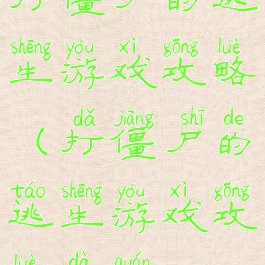 打僵尸的逃
shēng yóu xì gōng lüè
生游戏攻略
dǎ jiāng shī de
(打僵尸的
táo shēng yóu xì gōng
逃生游戏攻
lüè dà quán